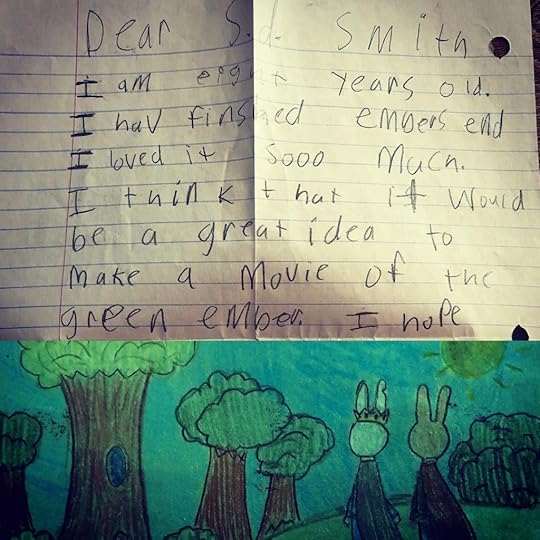 Dear S.d. Smith
I am eight years old.
I hav finshed embers end
I loved it sooo Much.
I think that it would
be a great idea to
make a Movie of the
green ember. I hope